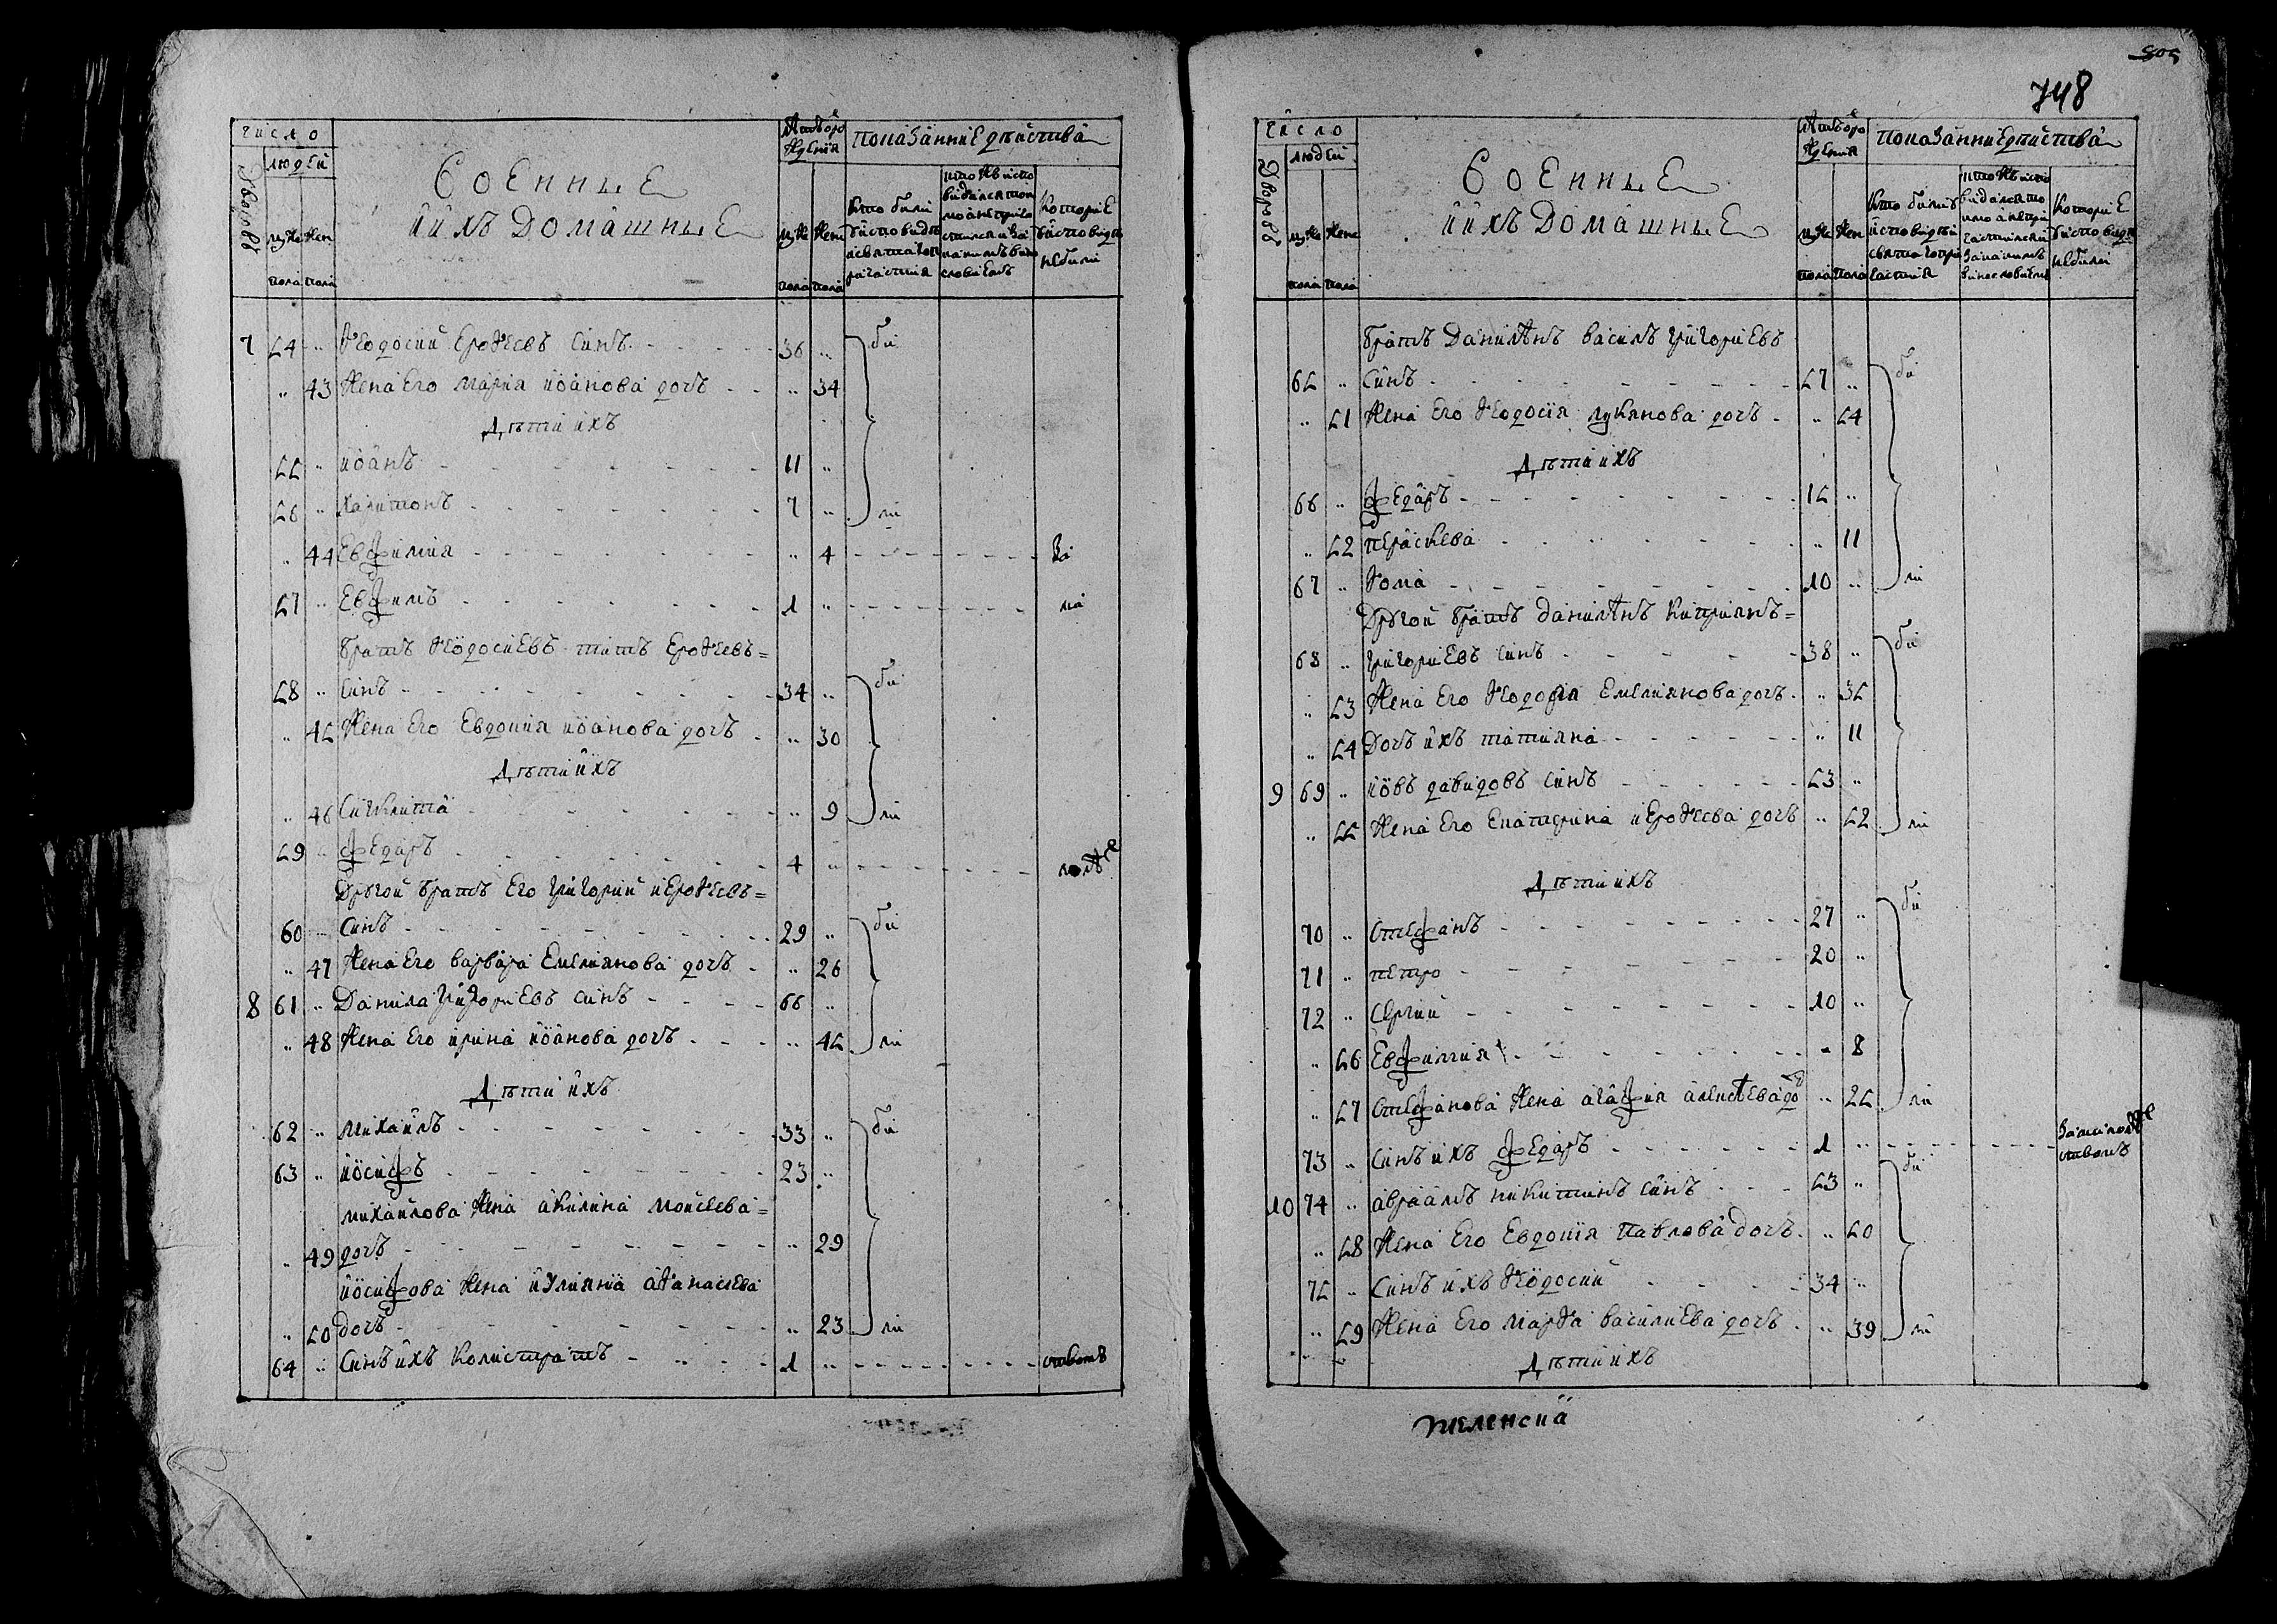 число
людей
Дворовъ
муже
пола
жен
пола
Военныѣ
и ихъ Домашныѣ
мужс
пола
женс
пола
Показанние дѣиства
Кто были
у исповѣди
и святаго при
частия
Которие
у исповѣди
не были
7 54 .. Ѳеодосий Ероѳеевъ синъ - - - 36 .. бы
.. 43 Жена Его Мария Иоанова дочъ - - .. 34
Дѣти ихъ
55 .. Иоанъ - - - 11 ..
56 .. Харитонъ - - - 7 .. ли
.. 44 Евфимия - - - .. 4 - - - За
57 .. Евфимъ - - - 1 .. - - - ма
Братъ Ѳеодосиевъ Титъ Ероѳеевъ=
58 .. синъ - - - 34 .. бы
.. 45 Жена Его Евдокия Иоанова дочъ - .. 30
Дѣти ихъ
.. 46 Сигклита - - - .. 9 ли
59 .. Федаръ - - - 4 .. - - -
Другой братъ Его Григорий Иероѳеевъ=
60 .. Синъ - - - 29 .. бы
.. 47 Жена Его Варвара Емелианова дочъ - .. 26
8 61 .. Данила Григориевъ синъ - - - 66 ..
.. 48 Жена Его Ирина Иоанова дочъ - - - .. 45 ли
Дѣти ихъ
62 .. Михаилъ - - - 33 .. бы
63 .. Иосифъ - - - 23 ..
Михайлова Жена Акилина Моисеева=
.. 49 дочъ - - - .. 29
Иосифова Жена Иулияна Аѳанасиева
.. 50 дочъ - - - .. 23 ли
64 .. Синъ ихъ Калистратъ - - - 1 .. - - - ствомъ
505
748
число
людей
Дворовъ
муже
пола
женс
пола
Военныѣ
и ихъ Домашныѣ
мужс
пола
жен
пола
Показанние дѣиства
Кто были у
исповѣди и
святаго при
частия
Которие
у исповѣди
не были
Братъ Данилѣнъ Василъ Григориевъ
65 .. Синъ - - - 57 .. бы
.. 51 Жена Его Ѳеодосия Лукянова дочъ - .. 54
Дѣти ихъ
66 .. Федаръ - - - 15 ..
.. 52 Параскева - - - .. 11
67 .. Ѳома - - - 10 .. ли
Другой братъ Данилѣнъ Киприянъ=
68 .. Григориевъ синъ - - - 38 .. бы
.. 53 Жена Его Ѳеодосия Емелиянова дочъ - .. 35
.. 54 Дочъ ихъ Татияна - - - .. 11
9 69 .. Иовъ Давидовъ синъ - - - 53 ..
.. 55 Жена Его Екатерина Иероѳеева дочъ .. 52 ли
Дѣти ихъ
70 .. Стефанъ - - - 27 .. бы
71 .. Петро - - - 20 ..
72 .. Сергий - - - 10 ..
.. 56 Евфимия - - - .. 8
.. 57 Стефанова Жена Агафия Алексѣева до .. 25 ли
73 .. Синъ ихъ Федаръ - - - 1 .. - - - За малолѣт
ствомъ
10 74 .. Авраамъ Никитинъ Синъ - - - 53 .. бы
.. 58 Жена Его Евдокия Павлова дочъ - .. 50
75 .. Синъ ихъ Ѳеодосий - - - 34 ..
.. 59 Жена Его Марѳа Василиева дочъ - .. 39 ли
Дѣти ихъ